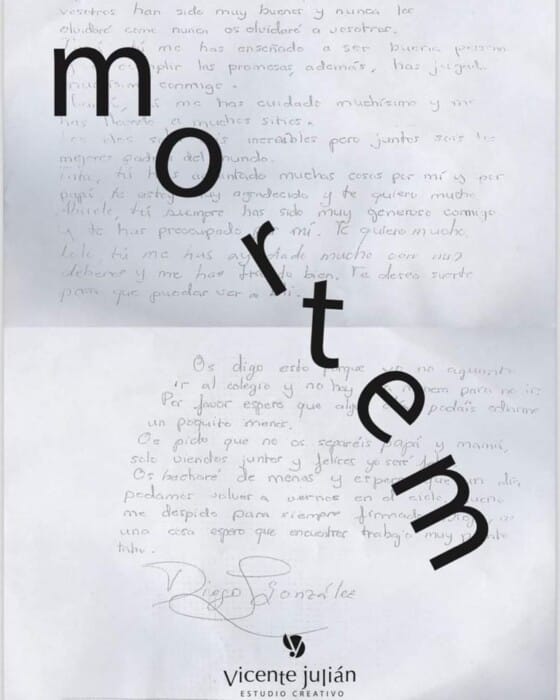 vosotros han sido muy buenos y nunca los
olvidaré como nunca os olvidaré a vosotros.
tú me has enseñado a ser buena persona
cumplir las promesas, además, has jugado
muchísimo conmigo.
tú me has cuidado muchísimo y me
has llevado a muchos sitios.
Los dos sois increíbles pero juntos sois los
mejores padres del mundo.
tú has aguantado muchas cosas por mí y por
papá, te estoy muy agradecido y te quiero mucho.
Abuelo, tú siempre has sido muy generoso conmigo
y te has preocupado por mí. Te quiero mucho.
Lolo, tú me has ayudado mucho con mis
deberes y me has tratado bien. Te deseo suerte
para que puedas ver a
Os digo esto porque yo no aguanto
ir al colegio y no hay otra manera para no ir.
Por favor espero que algún día podáis odiarme
un poquito menos.
Os pido que no os separéis papá y mamá,
solo viendos juntos y felices yo seré feliz.
Os hecharé de menos y espero que un día
podamos volver a vernos en el cielo. Bueno
me despido para siempre firmado Diego,
una cosa espero que encuentres trabajo muy pronto
Diego González
mortem
Vicente Julián
ESTUDIO CREATIVO